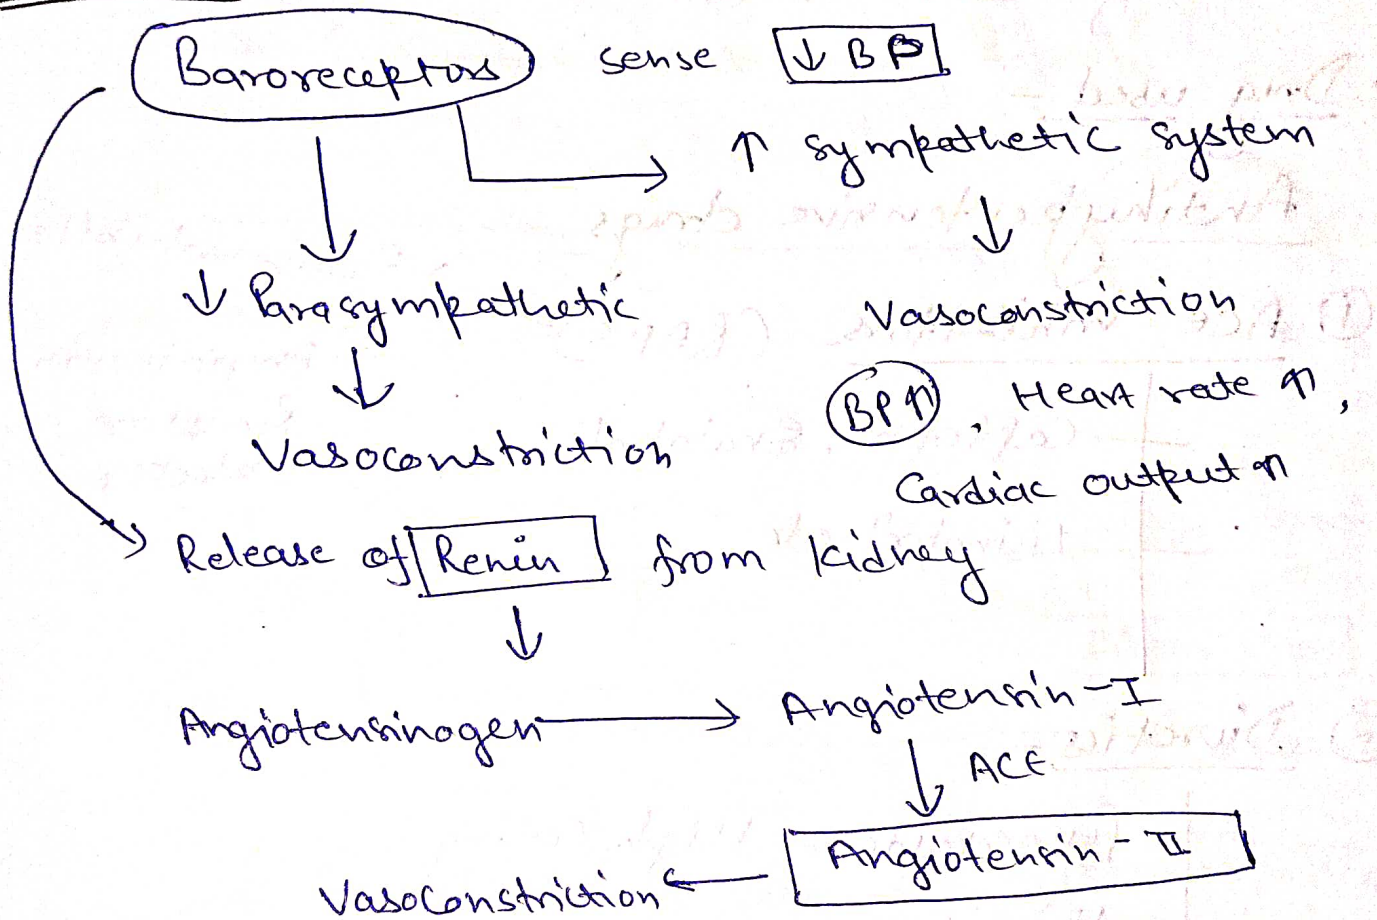 Baroreceptors sense ↓ BP
↑ sympathetic system
↓
↓ Parasympathetic
Vasoconstriction
↓
BP ↑, Heart rate ↑,
Vasoconstriction
Cardiac output ↑
Release of Renin from kidney
↓
Angiotensinogen → Angiotensin-I
↓ ACE
Angiotensin-II
Vasoconstriction ←